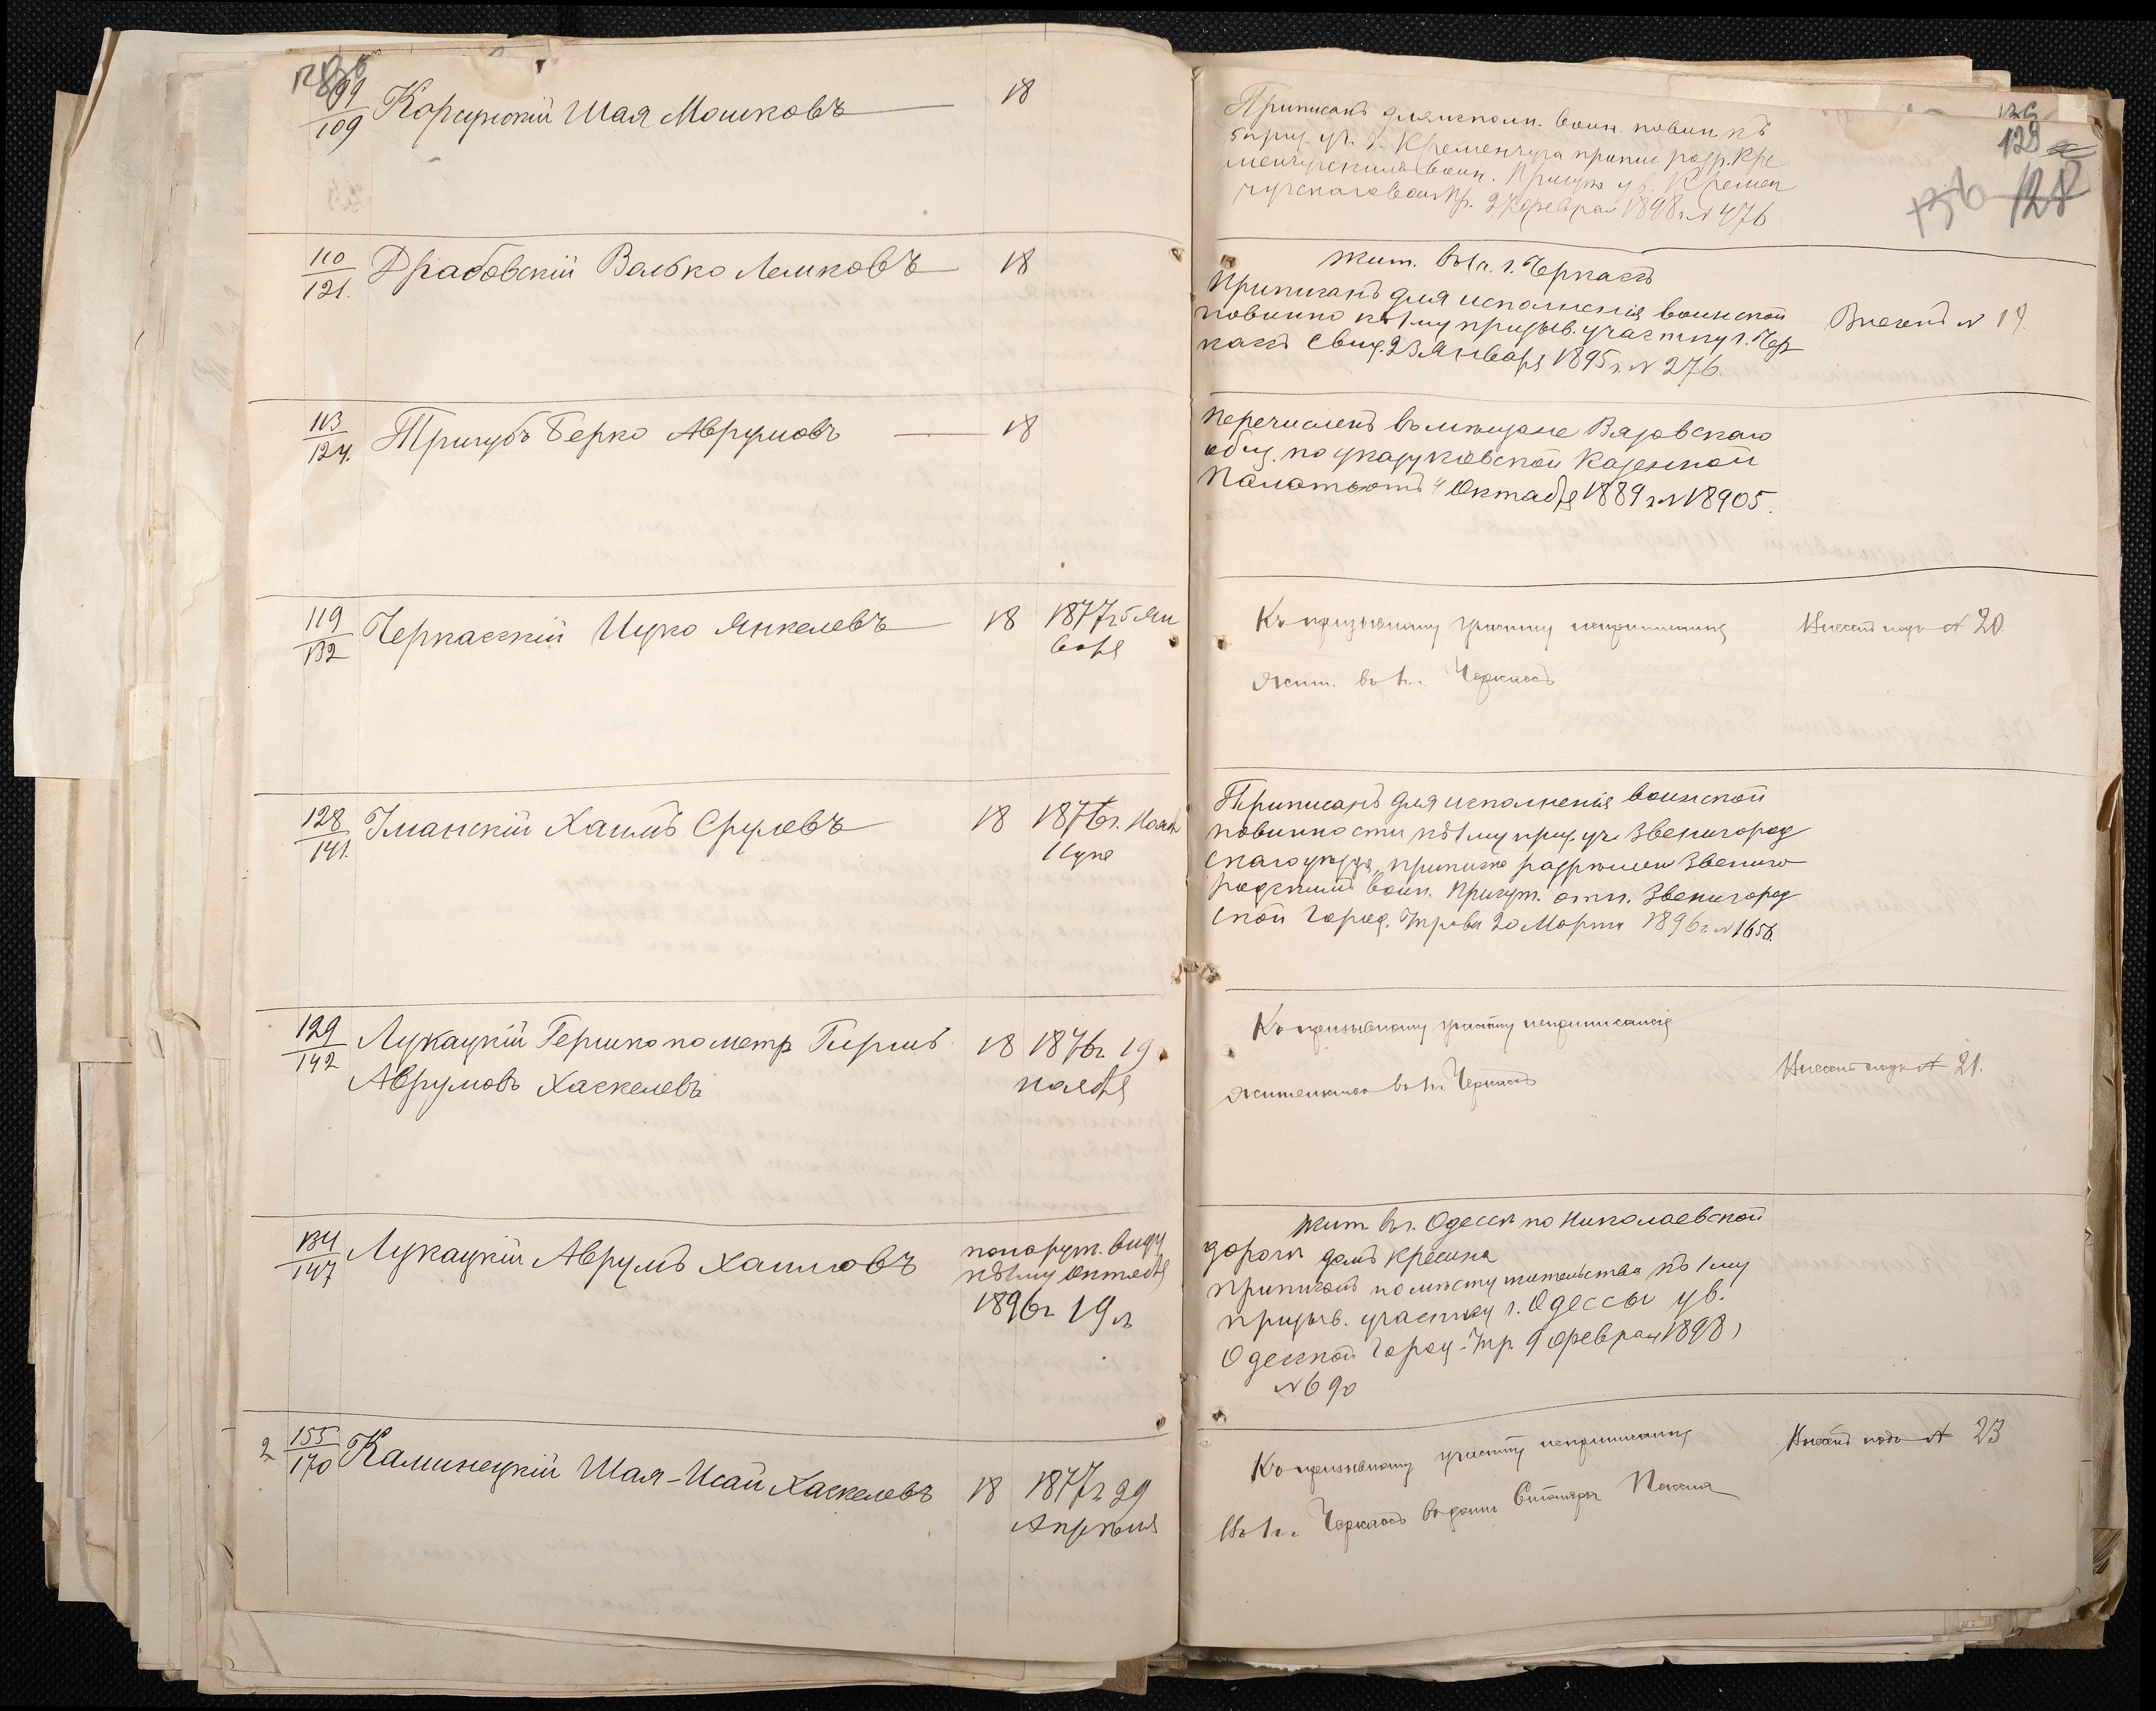 99
109
Корсунскій Шая Мошковъ
18
Приписанъ для исполн. воин. повин. къ
5 приз. уч. г. Кременчуга припис. разр. Кре
менчугскимъ воин. Присут. ув. Кремен
чугскаго воин. Пр. 9 Февраля 1898 г. № 476
128
128
110
121.
Драбовскій Валько Лемковъ
18
Жит. въ г. Черкасѣ
Приписанъ для исполненія воинской
повинно къ 1му призыв. участку г. Чер
касъ свид. 23 Января 1895 г. № 276
Внесенъ № 19.
113
124.
Тригубъ Берко Аврумовъ
18
Перечисленъ въ мѣщане Вязовскаго
общ. по указу Кіевской Казенной
Палаты отъ 4 Октября 1889 г. № 18905.
119
132
Черкасскій Ицко Янкелевъ
18
1877 г. 5 Ян
варя
Къ призывному участку неприписанъ
Внесенъ подъ № 20.
Жит. въ г. Черкассъ
128
141.
Уманскій Хаимъ Срулевъ
18
1876 г.
Приписанъ для исполненія воинской
повинности къ 1му приз. уч. Звенигород
скаго уѣзда, приписка разрѣшен Звениго
родскимъ воин. Присут. отн. Звенигород
ской Город. Управы 20 Марта 1896 г. № 1656.
129
142
Лукацкій Гершко по метр Гиршъ
Аврумовъ Хаскелевъ
18
1876 г. 19
ноября
Къ призывному участку неприписанъ
Жительство въ г. Черкассъ
Внесенъ подъ № 21.
134
147
Лукацкій Аврумъ Хаимовъ
по наруж. виду
къ 1му Октября
1896 г. 19 л.
Жит. въ г. Одессѣ по Николаевской
дорогѣ домъ
Приписанъ по мѣсту жительства къ 1му
призыв. участку г. Одессы ув.
Одесской Город. Упр. 9 Февраля 1898 г
№ 690
2
155
170
Каминецкій Шая-Исай Хаскелевъ
18
1877 г. 29
Апрѣля
Къ призывному участку неприписанъ
Внесенъ подъ № 23
Въ г. Черкассъ въ домѣ